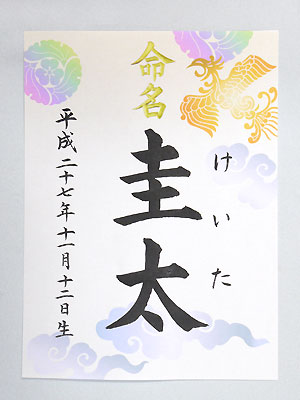 命名
圭太
けいた
平成二十七年十一月十二日生